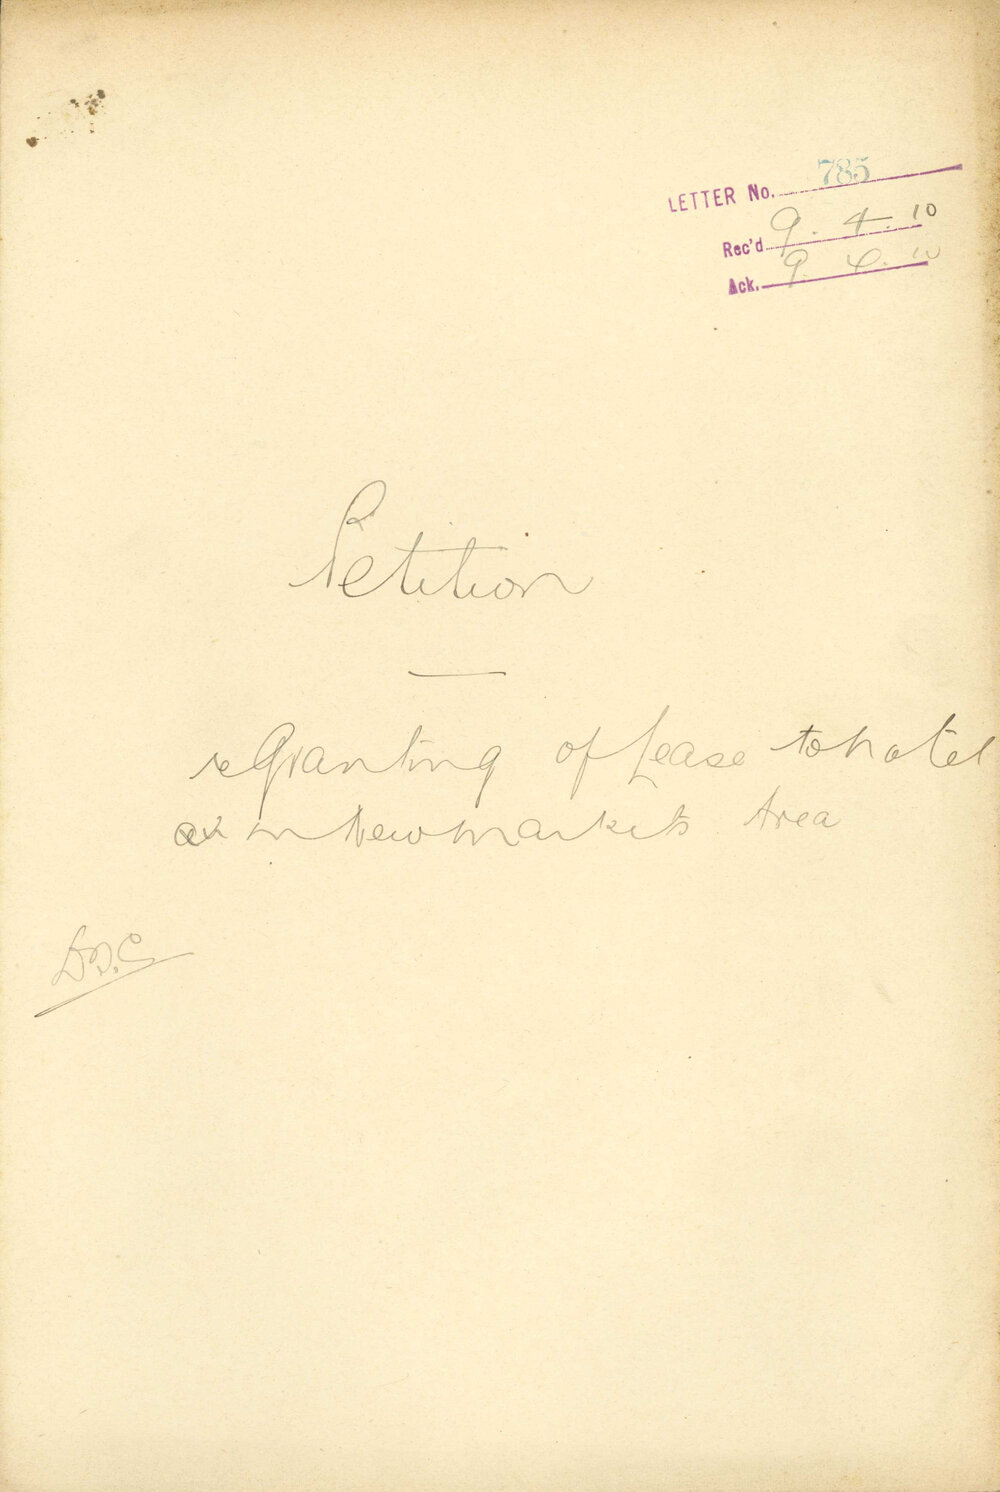 LETTER No. 785
Rec'd 9. 4. 10
Ack. 9 4. 10
Petition
re Granting of Lease to hotel
in New markets Area